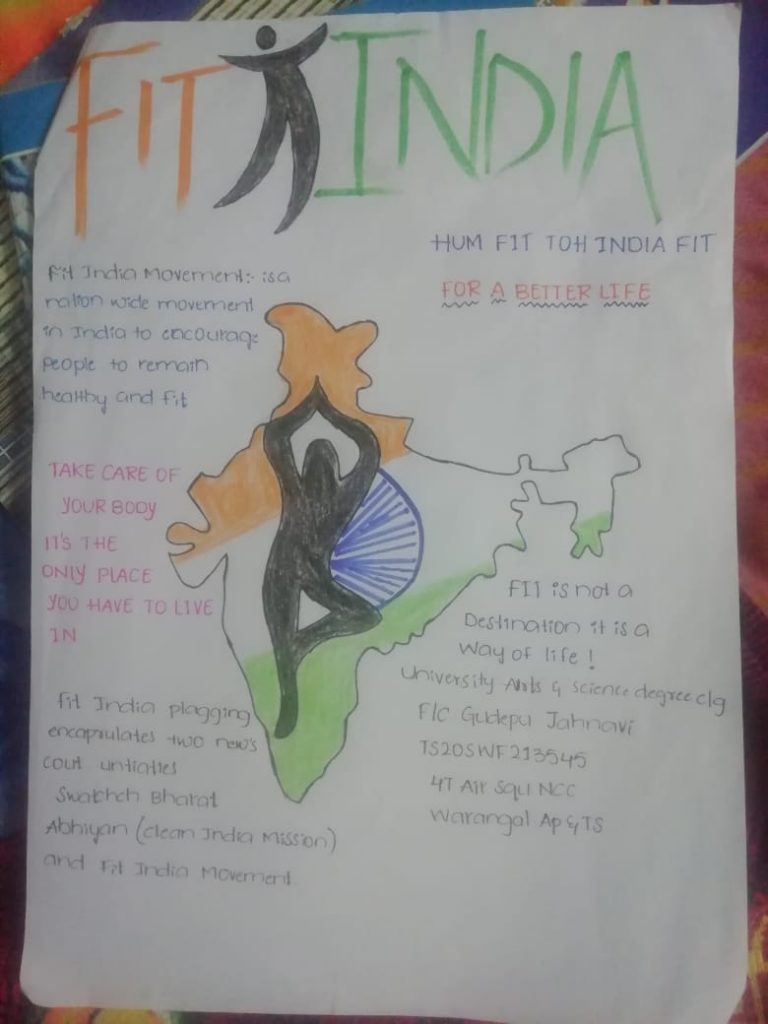 FIT INDIA
HUM FIT TOH INDIA FIT
FOR A BETTER LIFE
Fit India Movement:- is a
nation wide movement
in India to encourage
people to remain
healthy and fit
TAKE CARE OF
YOUR BODY
IT'S THE
ONLY PLACE
YOU HAVE TO LIVE
IN
FIT is not a
Destination it is a
way of life !
University Arts & science degree clg
F/C Gudepu Jahnavi
TS20SWF213545
4T Air Squ NCC
Warangal Ap & TS
Fit India plogging
encapsulates two new's
cout untiaties
Swabhch Bharat
Abhiyan (clean India Mission)
and Fit India Movement